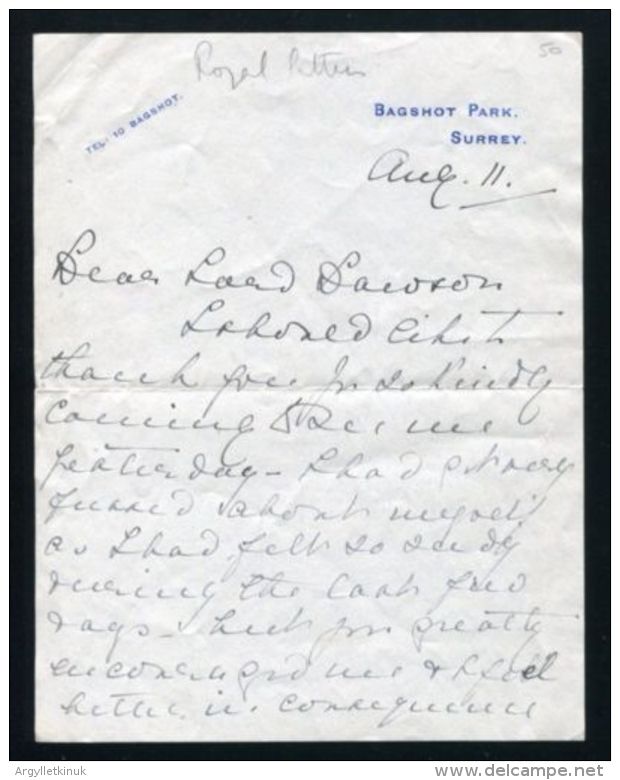 Royal Letters
50
TEL: 10 BAGSHOT.
BAGSHOT PARK.
SURREY.
Aug. 11.
Dear Lord Dawson
I should like to
thank you for so kindly
coming to see me
yesterday - I had got very
fussed about myself
as I had felt so seedy
during the last few
days - but you greatly
encouraged me & I feel
better in consequence
Argylletkinuk
www.delcampe.net